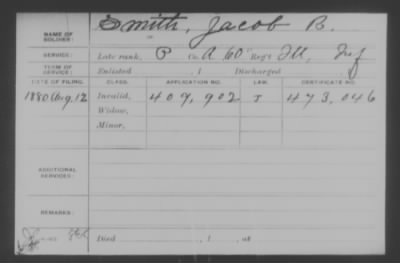 NAME OF SOLDIER: Smith, Jacob B.
SERVICE: Late rank, P Co. A 60 Reg't Ill. Inf
TERM OF SERVICE: Enlisted , 1 Discharged
DATE OF FILING. CLASS. APPLICATION NO. LAW. CERTIFICATE NO.
1880 Aug, 12 Invalid, 409,902 J 473,046
Widow,
Minor,
ADDITIONAL SERVICES:
REMARKS:
Died , 1 , at